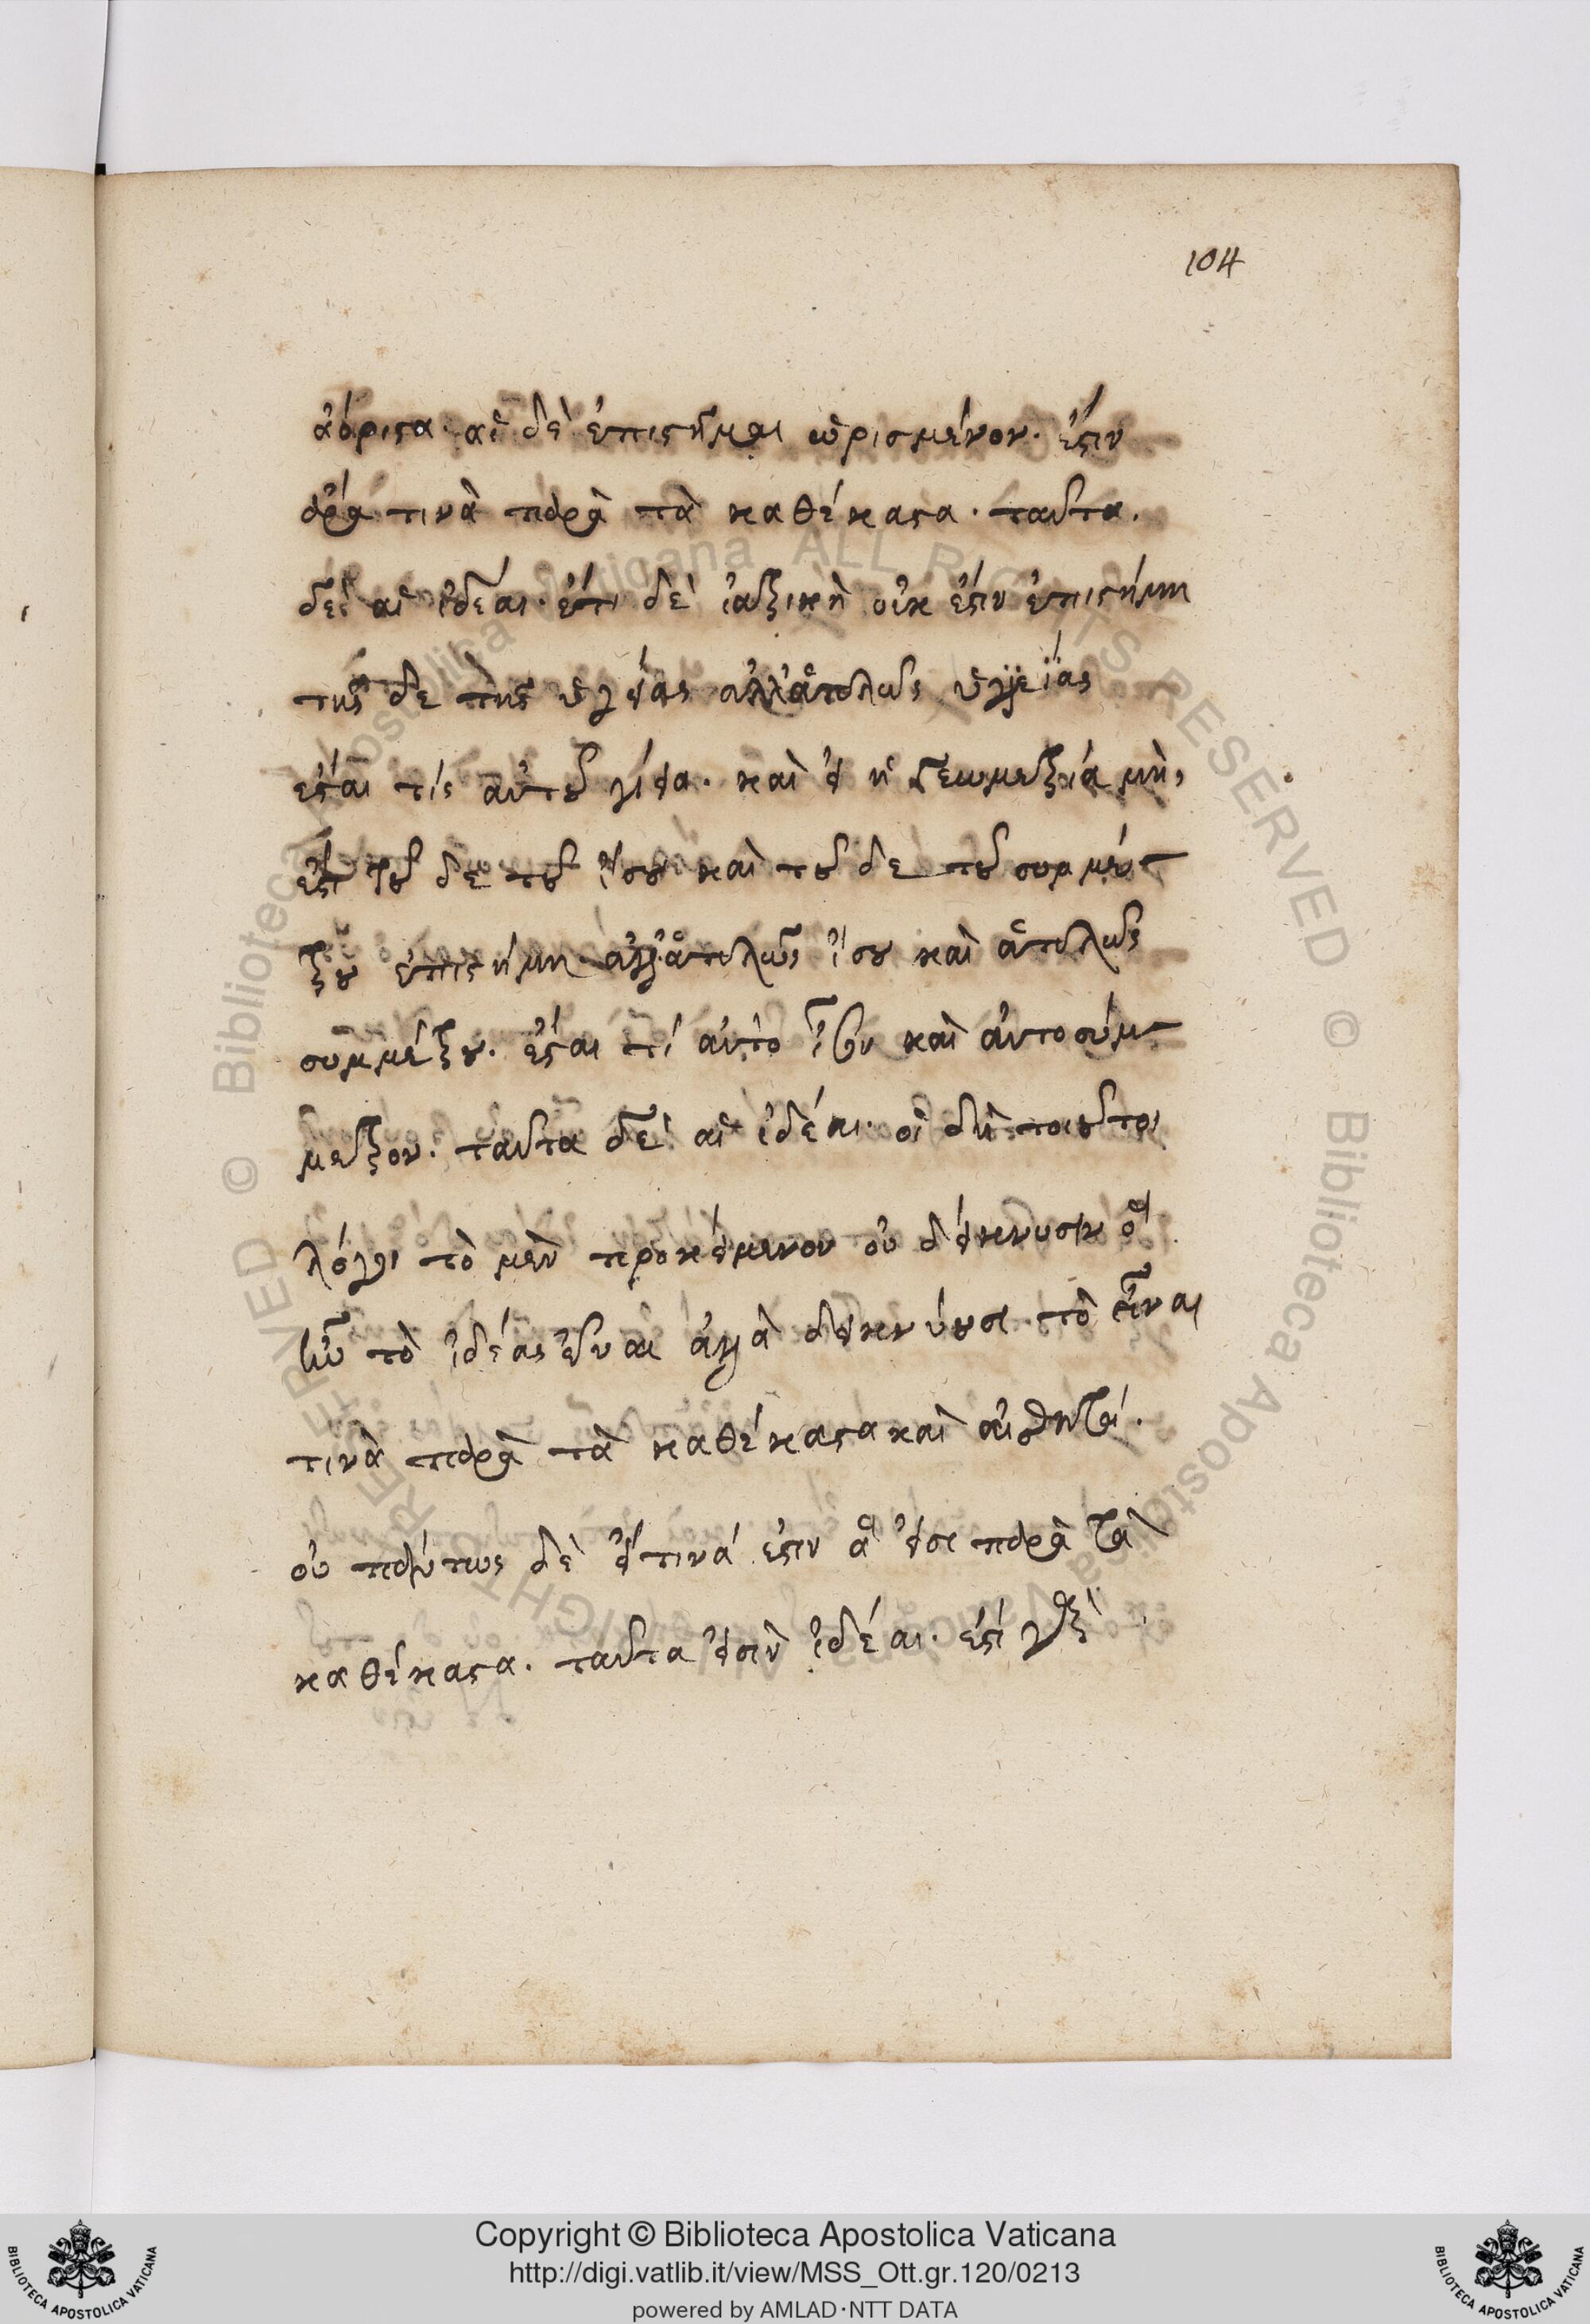 104
ἀόριστα· αἱ δὲ ἐπιστῆμαι ὡρισμένων· ἔστιν
ἄρα τινὰ παρὰ τὰ καθέκαστα· ταῦτα
δὲ αἱ ἰδέαι· ἔτι δὲ ἰατρικὴ οὐκ ἔστιν ἐπιστήμη
τῆς δε τῆς ὑγείας ἀλλ' ἁπλῶς ὑγιείας
ἔσται τίς αὐτοῦγίεια· καὶ εἰ ἡ γεωμετρία μή,
ἐστι τοῦ δε τοῦ ἴσου καὶ τοῦ δε τοῦ συμμέ
τρου ἐπιστήμη ἀλλ' ἁπλῶς ἴσου καὶ ἁπλῶς
συμμέτρου· ἔσται τί αὐτὸ ἴσον καὶ ἀυτοσύμ
μετρον· ταῦτα δὲ αἱ ἰδέαι· οἱ δὴ τοιοῦτοι
λόγοι τὸ μὲν προκείμενον οὐ δείκνυσιν ὃ
ἦν τὸ ἰδέας εἶναι ἀλλὰ δεικνύουσι τὸ εἶναι
τινὰ παρὰ τὰ καθέκαστα καὶ αἰσθητά·
οὐ πάντως δὲ εἴ τινά ἐστιν ἃ εἰσι παρὰ τὰ
καθέκαστα· ταῦτα εἰσὶν ἰδέαι· ἔστι γὰρ
Copyright © Biblioteca Apostolica Vaticana
http://digi.vatlib.it/view/MSS_Ott.gr.120/0213
powered by AMLAD·NTT DATA
BIBLIOTECA APOSTOLICA VATICANA
BIBLIOTECA APOSTOLICA VATICANA